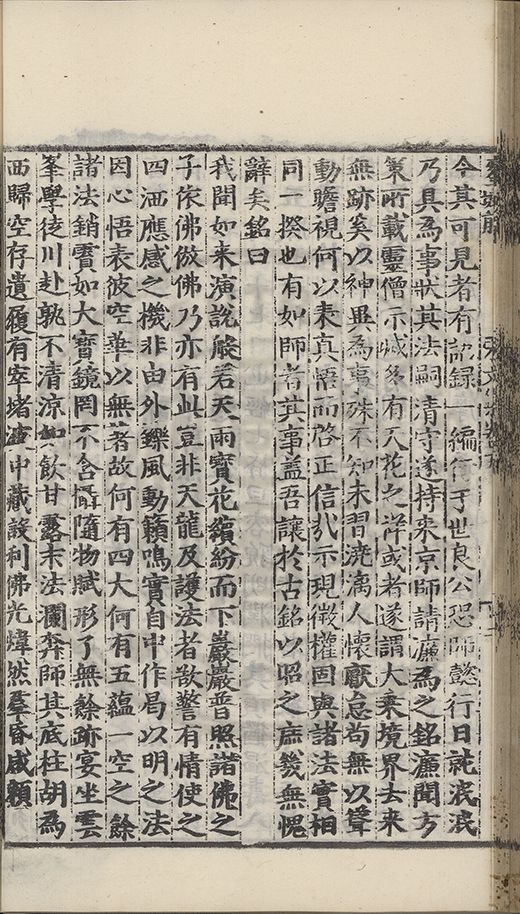 今其可見者有記録一編行于世良公恐師懿行日就泯泯
乃具為事狀其法嗣清守遂持来京師請濂為之銘濂聞方
策所載靈僧示滅多有天花之祥或者遂謂大乗境界去来
無跡奚以神異為事殊不知末習澆漓人懷厭怠苟無以聳
動瞻視何以表真悟而啓正信哉示現微權固與諸法實相
同一揆也有如師者其事蓋吾讓於古銘以昭之庶幾無愧
辭矣銘曰
我聞如来演說般若天雨寳花繽紛而下巖巖普照諸佛之
子依佛倣佛乃亦有此豈非天龍及護法者歘警有情使之
四洒應感之機非由外鑠風動籟鳴實自中作曷以明之法
因心悟表彼空華以無著故何有四大何有五蘊一空之餘
諸法銷霣如大寳鏡罔不含攝隨物賦形了無餘跡宴坐雲
峯學徒川赴孰不清凉如飲甘露末法瀾奔師其底柱胡為
西歸空存遺履有窣堵波中藏設利佛光煒然羣昏咸頼